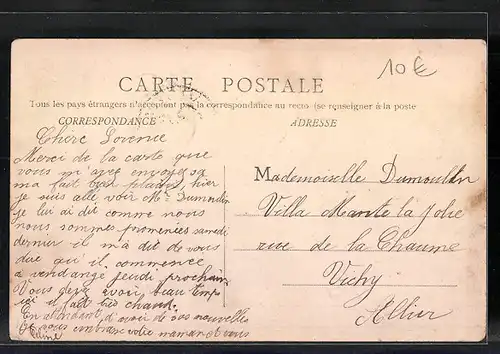 10€
CARTE POSTALE
Tous les pays étrangers n'acceptent pas la correspondance au recto (se renseigner à la poste
CORRESPONDANCE
ADRESSE
Chère
Merci de la carte que
vous m'avez envoyer sa
ma fait bien plaisir, hier
je suis alle voir Mr Dumoulin
je lui ai dit comme nous
nous sommes promenées samedi
dernier il m'a dit de vous
dire qu'il commence
a vendange jeudi prochain
Vous avoir beau temp
ici il fait très chaud.
En attendant d'avoir de vos nouvelles
je vous embrasse votre maman et vous
Mademoiselle Dumoulin
Villa Mante la Jolie
rue de la Chaume
Vichy
Allier